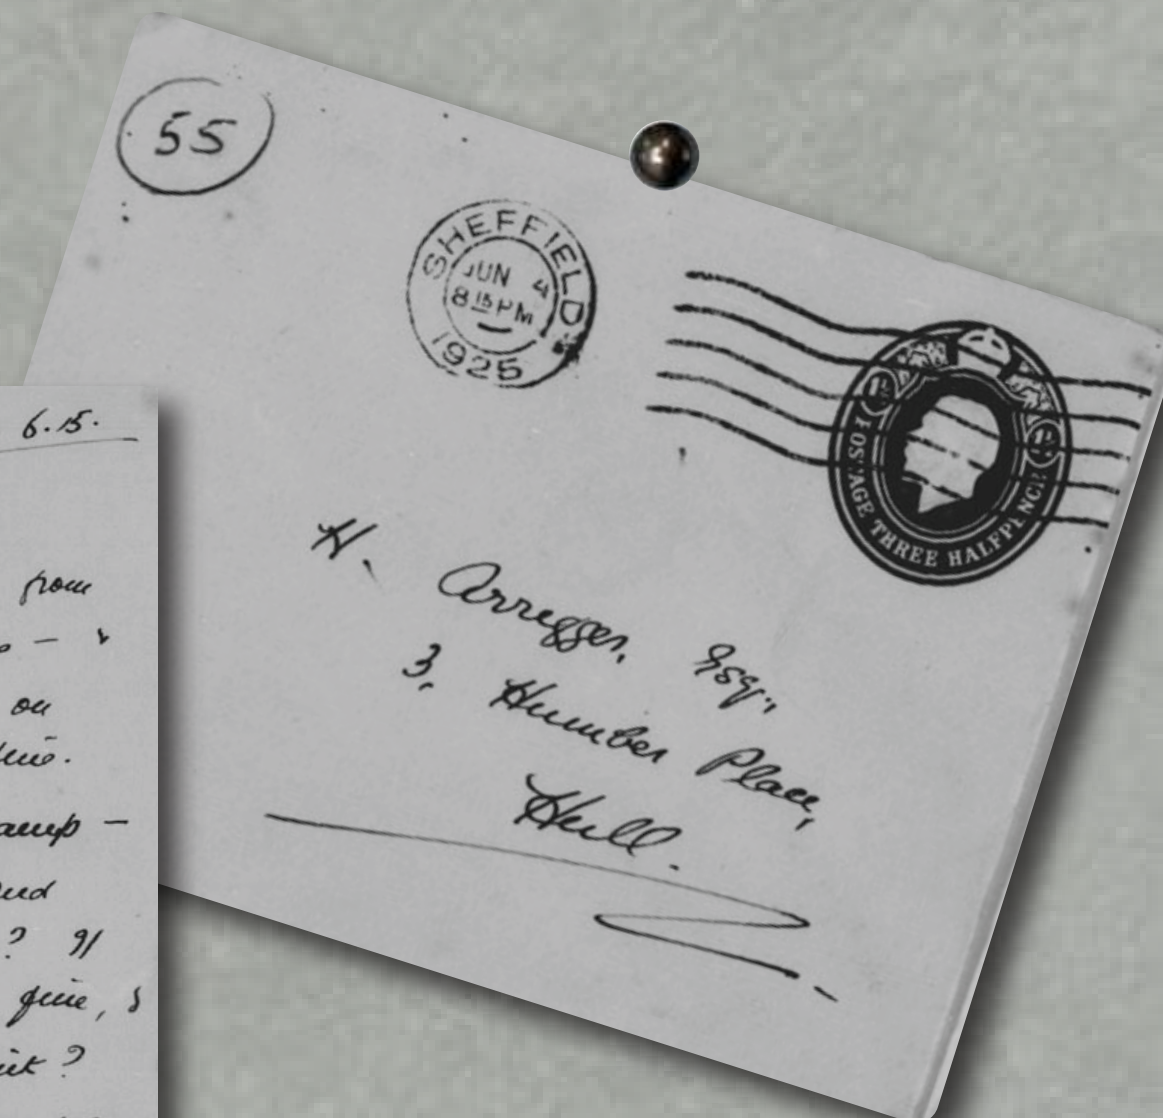 55
SHEFFIELD
JUN 4
8 15 PM
1925
POSTAGE THREE HALFPENCE
H. Arregger, Esq.,
3, Humber Place,
Hull.
6.15.
from
on
?
fine,
?